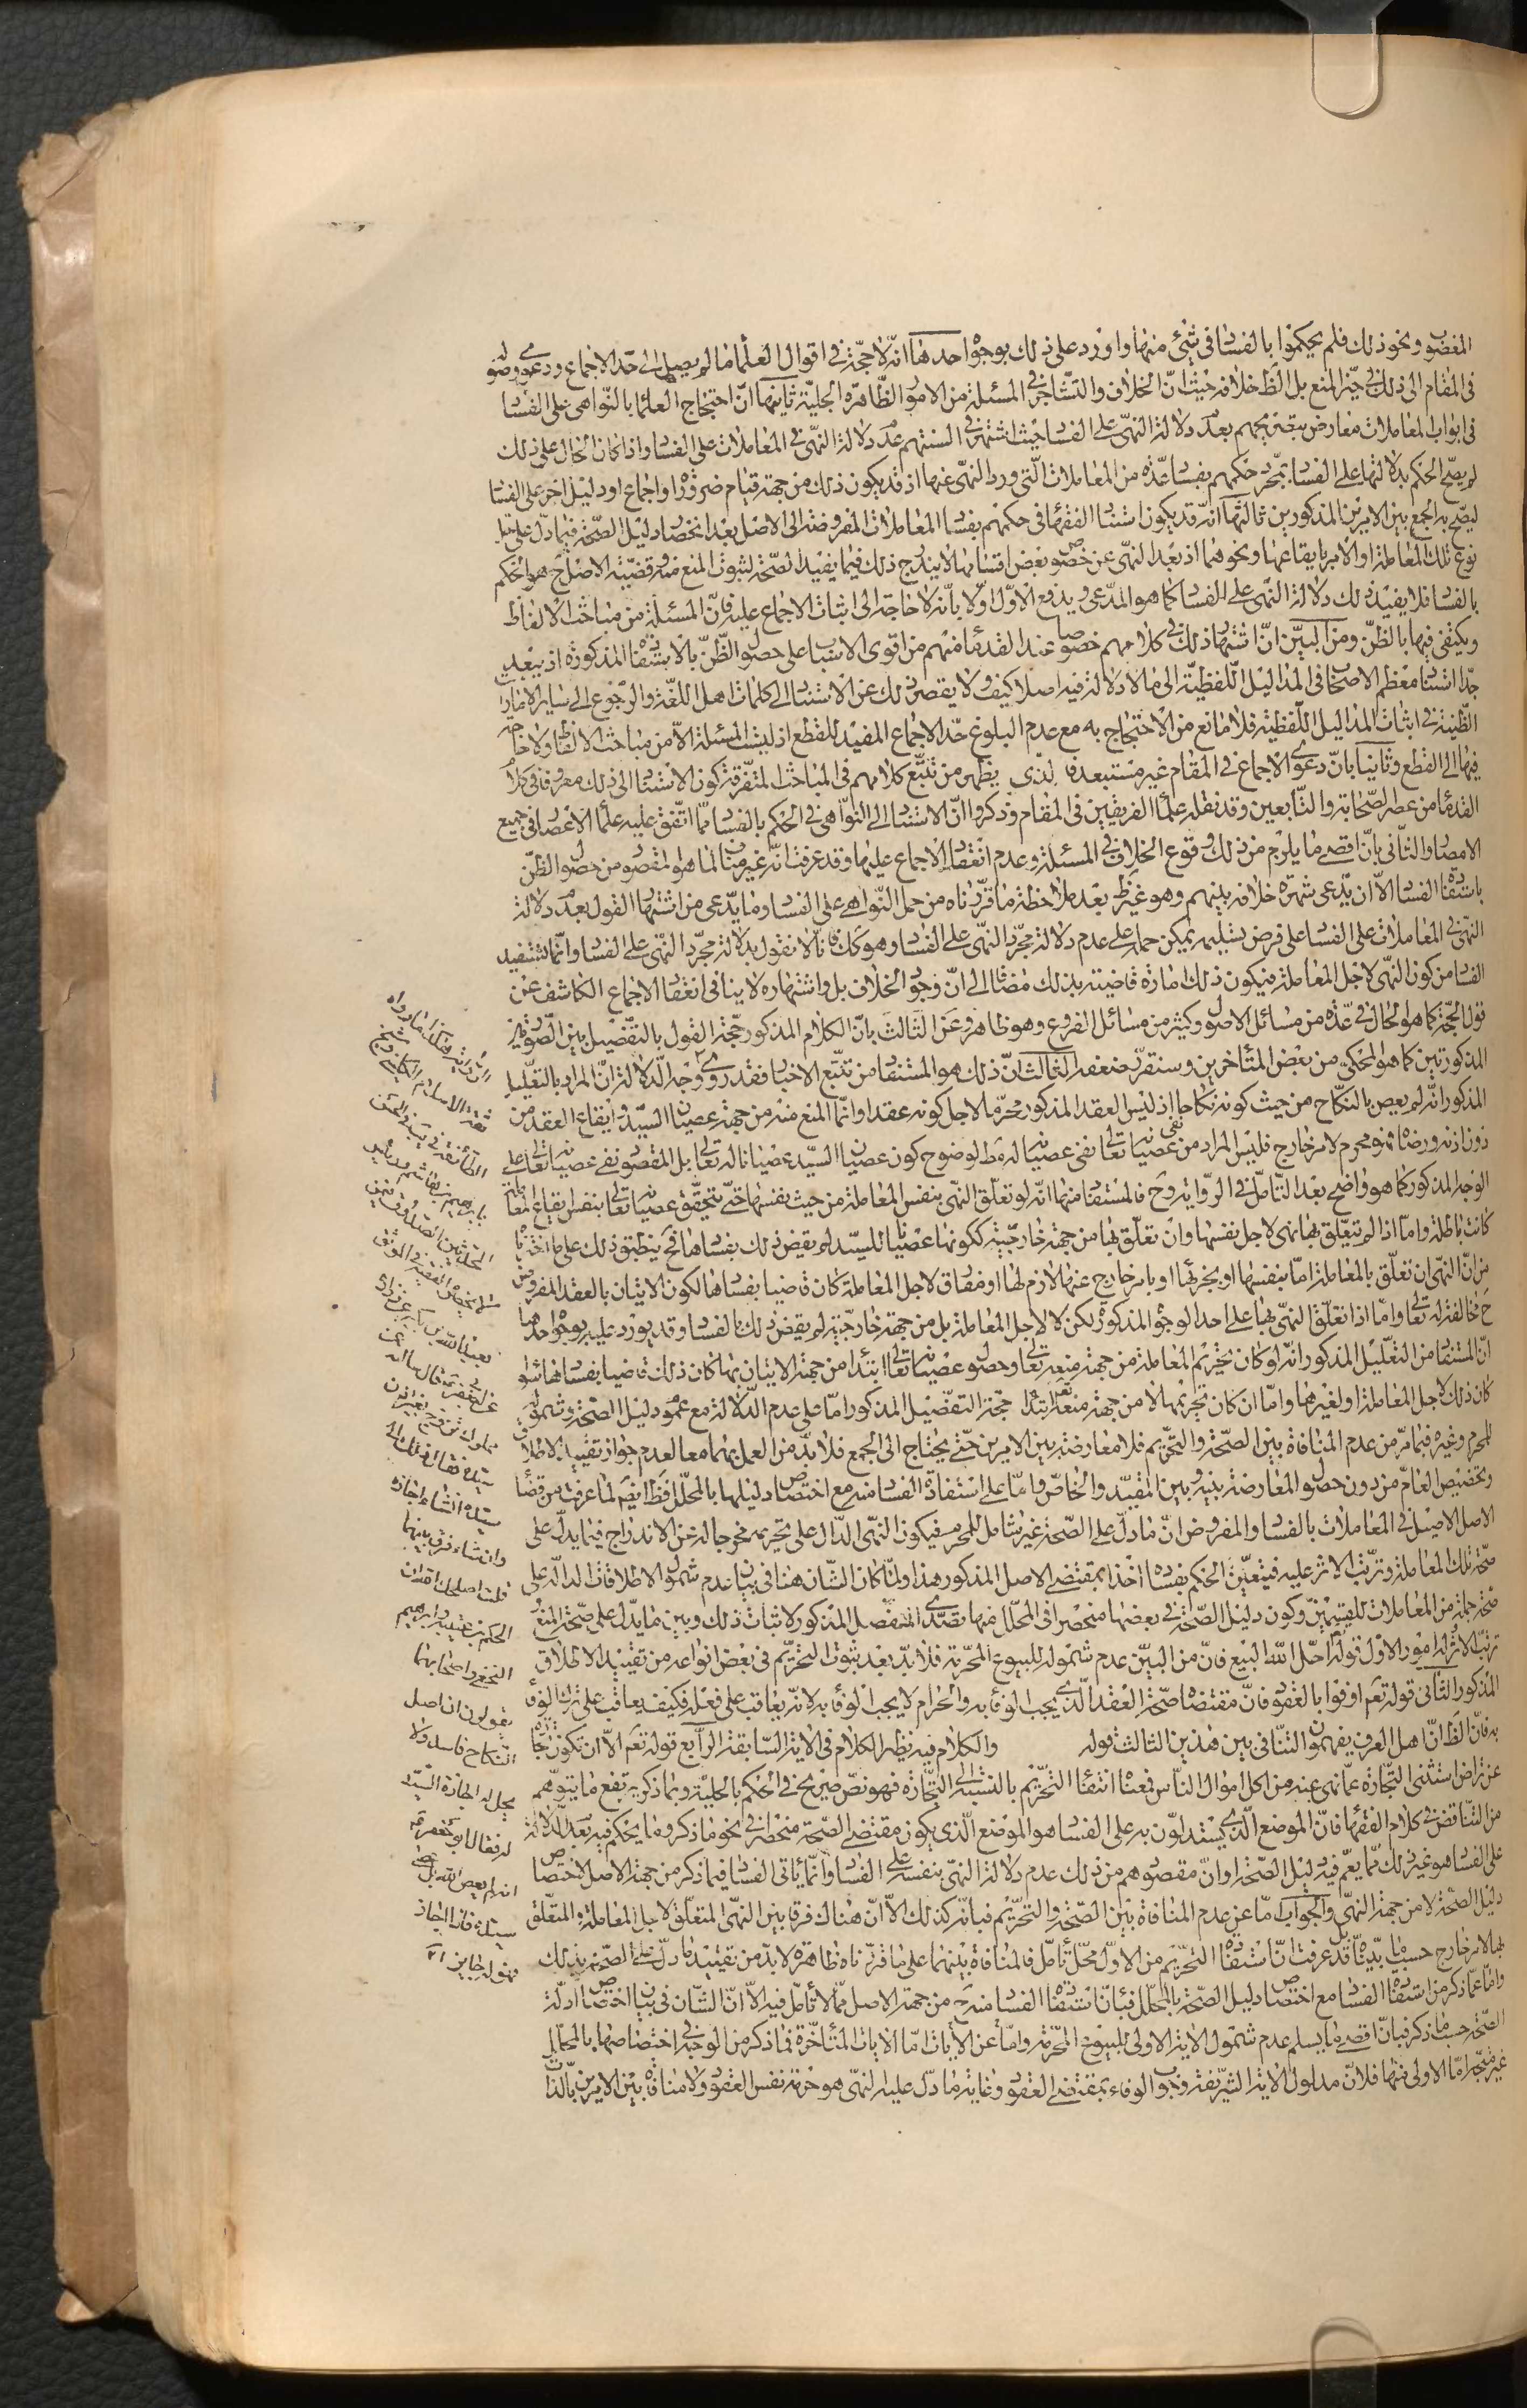 المغضوب ونحو ذلك فلم يحكموا بالفساد فى شئ منها واورد على ذلك بوجوه احدها انّه لا حجّة فى اقوال العلماء ما لم يصل الى حدّ الاجماع ودعوى وصوله
فى المقام الى ذلك فى حيّز المنع بل الظ خلافه حيث انّ الخلاف والتّشاجر فى المسئلة من الامور الظّاهرة الجليّة ثانيها انّ احتجاج العلماء بالنّواهى على الفساد
فى ابواب المعاملات معارض بتصريحهم بعدم دلالة النّهى على الفساد حيث اشتهر فى السنتهم عدم دلالة النّهى فى المعاملات على الفساد واذا كان الحال على ذلك
لم يصحّ الحكم بدلالتها على الفساد بمجرّد حكمهم بفساد عدّة من المعاملات الّتى ورد النّهى عنها اذ قد يكون ذلك من جهة قيام ضرورة او اجماع او دليل اخر على الفساد
ليصحّ به الجمع بين الامرين المذكورين ثالثها انّه قد يكون استناد الفقهاء فى حكمهم بفساد المعاملات المفروضة الى الاصل بعد انحصار دليل الصّحّة فيما دلّ على حلّ
نوع تلك المعاملة او الامر بايقاعها ونحوهما اذ بعد النّهى عن خصوص بعض اقسامها لا يندرج ذلك فيما يفيد الصّحّة لثبوت المنع منه وقضيّة الاصل ح هو الحكم
بالفساد فلا يفيد ذلك دلالة النّهى على الفساد كما هو المدّعى ويدفع الاوّل اوّلا بانّه لا حاجة الى اثبات الاجماع عليه فانّ المسئلة من مباحث الالفاظ
ويكتفى فيها بالظنّ ومن البيّن انّ اشتهار ذلك فى كلامهم خصوصا عند القدماء منهم من اقوى الاسباب على حصول الظّنّ بالاستفادة المذكورة اذ يبعد
جدّا استناد معظم الاصحاب فى المداليل اللّفظيّة الى ما لا دلالة فيه اصلا كيف ولا يقصر ذلك عن الاستناد الى كلمات اهل اللّغة والرّجوع الى ساير الامارات
الظّنيّة فى اثبات المداليل اللّفظيّة فلا مانع من الاحتجاج به مع عدم البلوغ حدّ الاجماع المفيد للقطع اذ ليست المسئلة الّا من مباحث الالفاظ ولا حاجة
فيها الى القطع وثانيا بانّ دعوى الاجماع فى المقام غير مستبعد فا لّذى يظهر من تتبّع كلامهم فى المباحث المتفرّقة كون الاستناد الى ذلك معروفا فى كلام
القدماء من عصر الصّحابة والتّابعين وقد نقله علماء الفريقين فى المقام وذكروا انّ الاستناد الى النّواهى فى الحكم بالفساد ممّا اتّفق عليه علماء الاعصار فى جميع
الامصار والثّانى بانّ اقصى ما يلزم من ذلك وقوع الخلاف فى المسئلة وعدم انعقاد الاجماع عليها وقد عرفت انّه غير مناف لما هو المقصود من حصول الظّن
باستفادة الفساد الّا ان يدّعى شهرة خلافه بينهم وهو غير ظ بعد ملاحظة ما قرّرناه من حمل النّواهى على الفساد وما يدّعى من اشتهار القول بعدم دلالة
النّهى فى المعاملات على الفساد على فرض تسليمه يمكن حمله على عدم دلالة مجرّد النّهى على الفساد وهو كك فانّا لا نقول بدلالة مجرّد النّهى على الفساد وانّما تستفيد
الفساد من كون النّهى لاجل المعاملة فيكون ذلك امارة قاضية بذلك مضافا الى انّ وجود الخلاف بل واشتهاره لا ينافى انعقاد الاجماع الكاشف عن
قول الحجّة كما هو الحال فى عدّة من مسائل الاصول وكثير من مسائل الفروع وهو ظاهر وعن الثّالث بانّ الكلام المذكور حجّة القول بالتّفصيل بين الصّورتين
المذكورتين كما هو المحكى من بعض المتأخرين وسنقرّر ضعفه الثّالث انّ ذلك هو المستفاد من تتبّع الاخبار فقد روى وجه الدّلالة انّ المراد بالتعليل
المذكور انّه لم يعص بالنكاح من حيث كونه نكاحا اذ ليس العقد المذكور محرّما لاجل كونه عقدا وانّما المنع منه من جهة عصيان السيّد وايقاع العقد من
دون اذنه ورضاه فهو محرم لامر خارج فليس المراد من نفى عصيانه تعالى نفى عصيانه له مط لوضوح كون عصيان السيّد عصيانا له تعالى بل المقصود نفى عصيانه تعالى على
الوجه المذكور كما هو واضح بعد التّأمّل فى الرّواية وح فالمستفاد منها انّه لو تعلّق النّهى بنفس المعاملة من حيث نفسها حتّى يتحقّق عصيانه تعالى بنفس ايقاع المعاملة
كانت باطلة وامّا اذا لم يتعلّق بها نهى لاجل نفسها وان تعلّق بها من جهة خارجيّة ككونها عصيانا للسيّد لم يقض ذلك بفسادها فح ينطبق ذلك على ما اخترناه
من انّ النّهى ان تعلّق بالمعاملة امّا بنفسها او بجزئها او بامر خارج عنها لازم لها او مفارق لاجل المعاملة كان قاضيا بفسادها لكون الاتيان بالعقد المفروض
ح مخالفة له تعالى وامّا اذا تعلّق النّهى بها على احد الوجوه المذكورة لكن لا لاجل المعاملة بل من جهة خارجيّة لم يقض ذلك بالفساد وقد يورد عليه بوجوه احدها
انّ المستفاد من التعليل المذكور انّه لو كان تحريم المعاملة من جهة منعه تعالى وحصول عصيانه تعالى ابتداء من جهة الاتيان بها كان ذلك قاضيا بفسادها سواء
كان ذلك لاجل المعاملة او لغيرها وامّا ان كان تحريمها لا من جهة منعه تعالى ابتداء حجّة التفصيل المذكور امّا على عدم الدّلالة مع عموم دليل الصّحّة وشموله
للمحرم وغيره فبما مرّ من عدم المنافاة بين الصحّة والتحريم فلا معارضة بين الامرين حتّى يحتاج الى الجمع فلا بدّ من العمل بهما معا لعدم جواز تقييد الاطلاق
وتخصيص العامّ من دون حصول المعارضة بينه وبين المقيّد والخاصّ وامّا على استفادة الفساد منه مع اختصاص دليلها بالمحلّل فقط ايضا فلما عرفت من قضاء
الاصل الاصيل فى المعاملات بالفساد والمفروض انّ ما دلّ على الصّحّة غير شامل للمحرم فيكون النّهى الدّال على تحريمه مخرجا له عن الاندراج فيما يدلّ على
صحّة تلك المعاملة وترتّب الاثر عليه فيتعيّن الحكم بفساده اخذا بمقتضى الاصل المذكور هذا ولمّا كان الشّأن هنا فى بيان عدم شمول الاطلاقات الدالّة على
صحّة جملة من المعاملات للقسمين وكون دليل الصّحّة فى بعضها منحصرا فى المحلّل منها تصدّى المفصّل المذكور لاثبات ذلك وبين ما يدلّ على صحّة البيع
ترتّب الاثر امور الاوّل قوله احلّ اللّه البيع فانّ من البيّن عدم شموله للبيوع المحرّمة فلا بدّ بعد ثبوت التحريم فى بعض انواعه من تقييد الاطلاق
المذكور الثّانى قوله تعم اوفوا بالعقود فانّ مقتضاه صحّة العقد الّذى يجب الوفاء به والحرام لا يجب الوفاء به لانّه يعاقب على فعله فكيف يعاقب على ترك الوفاء
به فانّ الظ انّ اهل العرف يفهمون التنافى بين هذين الثالث قوله والكلام فيه نظير الكلام فى الاية السّابقة الرّابع قوله تعم الّا ان تكون تجارة
عن تراض استثنى التّجارة عمّا نهى عنه من اكل اموال النّاس فمعناه انتفاء التّحريم بالنّسبة الى التّجارة فهو نصّ صريح فى الحكم بالحليّة وبما ذكر يرتفع ما يتوهّم
من التّناقض فى كلام الفقهاء فانّ الموضع الّذى يستدلّون به على الفساد هو الموضع الّذى يكون مقتضى الصّحّة منحصرا فى نحو ما ذكر وما يحكم فيه بعدم الدّلالة
على الفساد هو غير ذلك ممّا يعمّ فيه دليل الصّحّة او انّ مقصودهم من ذلك عدم دلالة النّهى بنفسه على الفساد وانّما يأتى الفساد فيما ذكر من جهة الاصل لاختصاص
دليل الصّحّة لا من جهة النّهى والجواب امّا عن عدم المنافاة بين الصّحّة والتحريم فبانّه كذلك الّا انّ هناك فرقا بين النّهى المتعلّق لاجل المعاملة والمتعلّق
بها لامر خارج حسبما بيّنّاه بل قد عرفت انّ استفادة التّحريم من الاوّل محلّ تأمّل فالمنافاة بينهما على ما قرّرناه ظاهرة لا بدّ من تقييد ما دلّ على الصّحّة بذلك
وامّا عمّا ذكر من استفادة الفساد مع اختصاص دليل الصّحّة بالمحلّل فبانّ استفادة الفساد منه ح من جهة الاصل ممّا لا تأمّل فيه الّا انّ الشّان فى بيان اختصاص ادلّة
الصّحّة حسبما ذكر فبانّ اقصى ما يسلم عدم شمول الاية الاولى للبيوع المحّرمة وامّا عن الايات امّا الايات المتأخّرة فما ذكر من الوجه فى اختصاصها بالمحلّل
غير متّجه امّا الاولى منها فلانّ مدلول الاية الشّريفة وجوب الوفاء بمقتضى العقود وغاية ما دلّ عليه النّهى هو حرمة نفس العقود ولا منافاة بين الامرين بالذّات
الرّواية هكذا ما رواه
ثقة الاسلام الكلينى وشيخ
الطائفة
بابرهيم بن هاشم
المحدثين الصدوق
لا يحضره الفقيه فى الموثق
بعبد اللّه بن بكير عن زرارة
عن ابى جعفر ع قال سالته عن
مملوك تزوج بغير اذن
سيّده فقال ذلك الى
سيّده ان شاء اجازه
وان شاء فرق بينهما
قلت اصلحك اللّه ان
الحكم بن عتيبة وابرهيم
النخعى واصحابهما
يقولون ان اصل
النكاح فاسد ولا
يحل له اجازة السّيّد
له فقال ابو جعفر ع
انه لم يعص اللّه بل عصى
سيّده فاذا اجاز
فهو له جايز اه